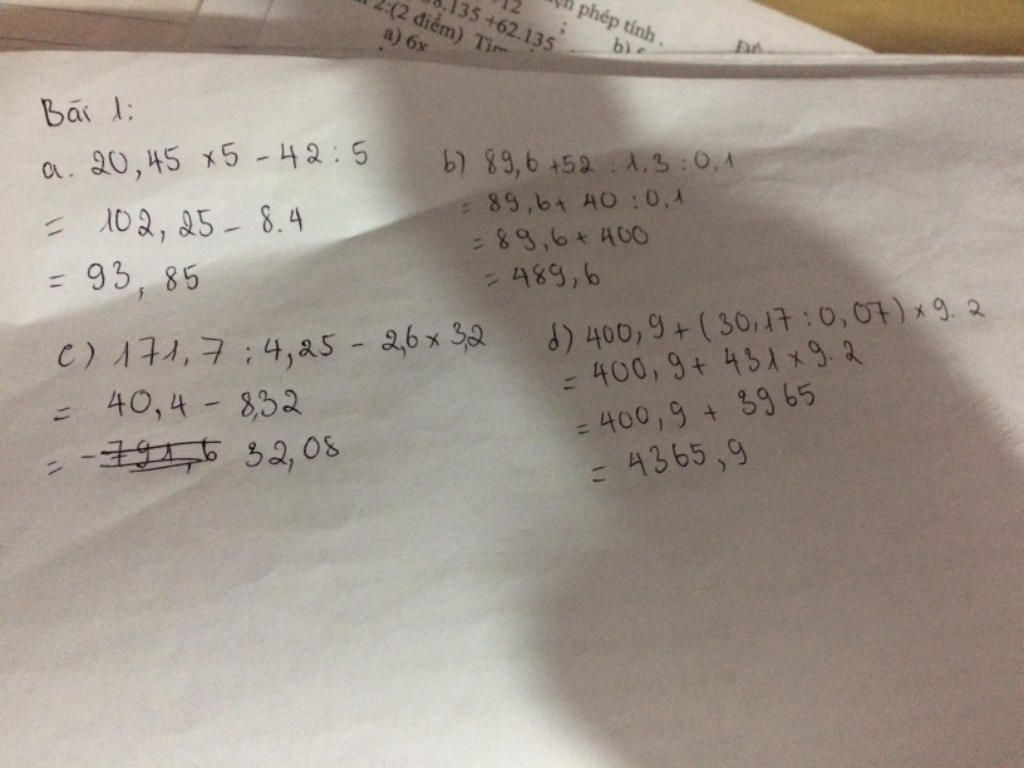 +12
38.135 +62.135 ;
2:(2 điểm) Tìm
a) 6x
phép tính .
b)
Bài 1:
a. 20,45 x5 - 42 : 5
= 102,25 - 8.4
= 93,85
b) 89,6 +52 : 1,3 : 0,1
= 89,6+ 40 : 0,1
= 89,6 + 400
= 489,6
c) 171,7 : 4,25 - 2,6 x 3,2
= 40,4 - 8,32
= - 32,08
d) 400,9 + (30,17 : 0,07) x 9.2
= 400,9 + 431 x 9.2
= 400,9 + 3965
= 4365,9